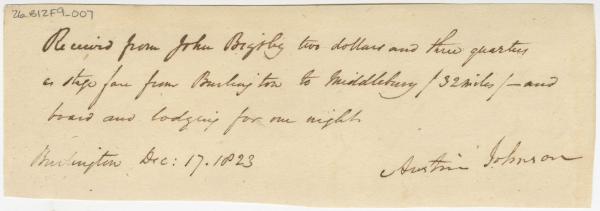 26B12F9_007
Received from John Bigsby two dollars and three quarters
as stage fare from Burlington to Middlebury / 32 miles / - and
board and lodging for one night
Burlington Dec: 17. 1823
Austin Johnson